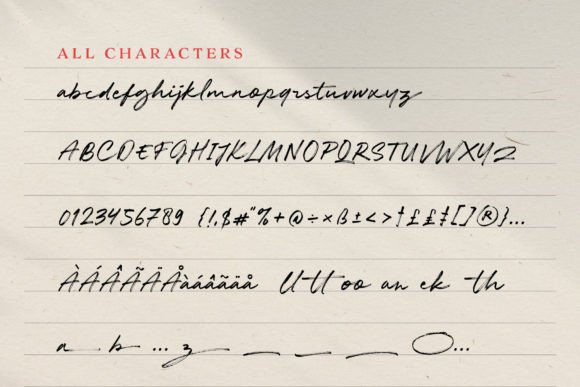 ALL CHARACTERS
abcdefghijklmnopqrstuvwxyz
ABCDEFGHIJKLMNOPQRSTUVWXYZ
0123456789 {!,$#"%+@÷×ß±<>†££‡[]®}...
ÀÁÂÃÄÅàáâãäå Utt oo an ek th
a b ... z O...